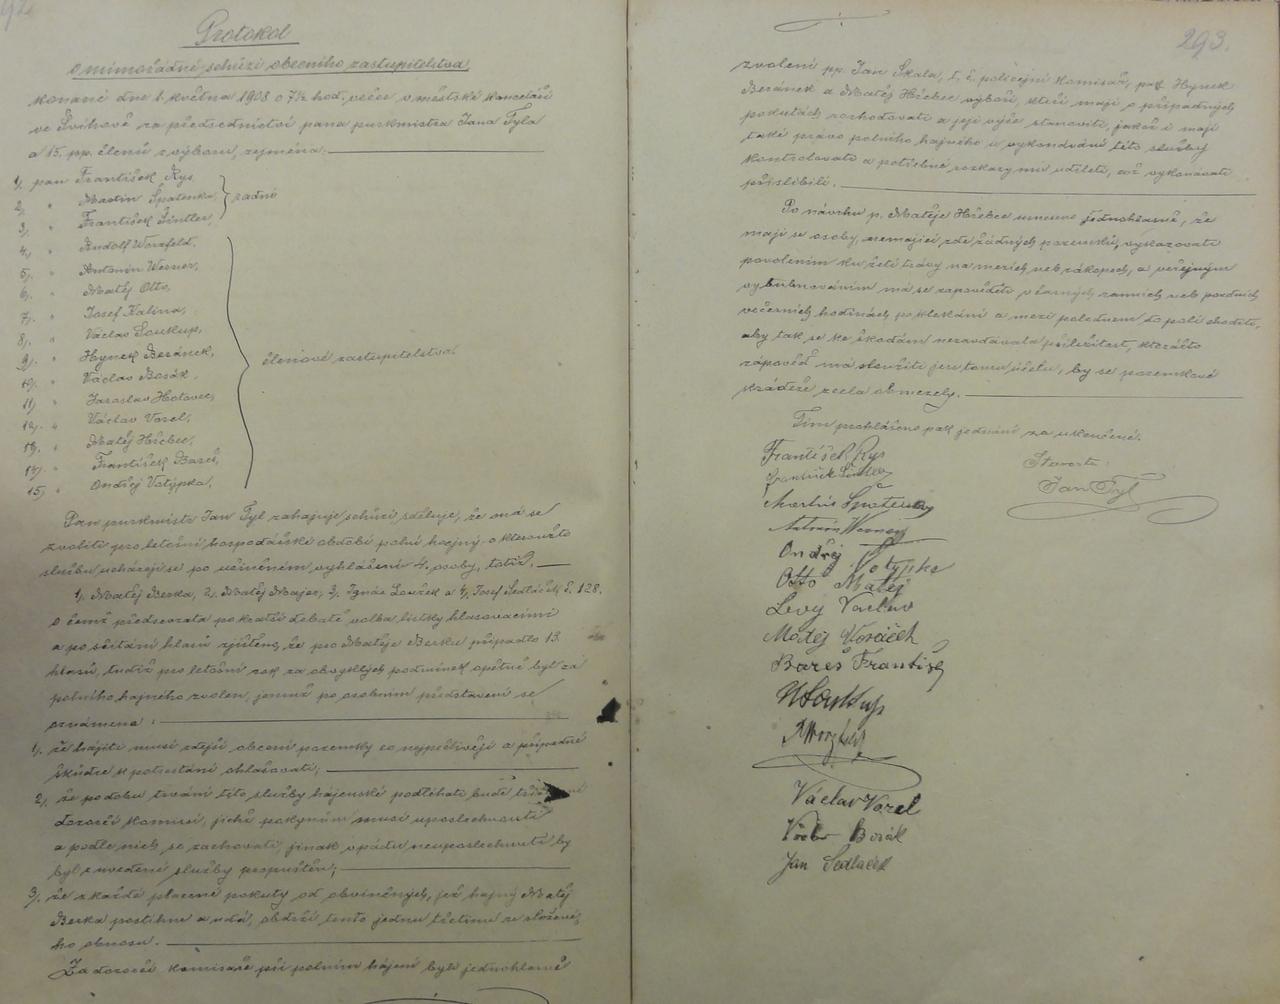 292
Protokol
o mimořádné schůzi obecního zastupitelstva,
konané dne 1. května 1908 o 7½ hod. večer v městské kanceláři
ve Švihově za předsednictví pana purkmistra Jana Tyla
a 15. pp. členů z výboru, zejména:
1., pan František Rys
2., " Martin Špatenka,
3., " František Šindler,
radní
4., " Rudolf Worzfeld,
5., " Antonín Werner,
6., " Matěj Otto,
7., " Josef Kalina,
8., " Václav Soukup,
9., " Hynek Beránek,
10., " Václav Bosák,
11., " Jaroslav Holovec,
12., " Václav Vozel,
13., " Matěj Hřebec,
14., " František Bareš,
15., " Ondřej Votýpka,
členové zastupitelstva.
Pan purkmistr Jan Tyl zahajuje schůzi, sděluje, že má se
zvoliti pro letošní hospodářské období polní hajný o kteroužto
službu ucházejí se po učiněném vyhlášení 4. osoby, totiž:
1., Matěj Berka, 2., Matěj Majer, 3., Ignác Loužek a 4., Josef Sedláček č. 128.
o čemž předsevzata po kratší debatě volba lístky hlasovacími
a po sčítání hlasů zjištěno, že pro Matěje Berku připadlo 13
hlasů, tudíž pro letošní rok za obvyklých podmínek opětně byl za
polního hajného zvolen, jemuž po osobním představení se
oznámeno:
1., že hájiti musí zdejší obecní pozemky co nejpečlivěji a případné
škůdce k potrestání ohlašovati;
2., že po dobu trvání této služby hájenské podléhati bude
dozorčí komisi, jichž pokynům musí uposlechnouti
a podle nich se zachovati, jinak v pádu neuposlechnutí by
byl z uvedené služby propuštěn;
3., že z každé placené pokuty od obviněných, jež hajný Matěj
Berka postihne a udá, obdrží tento jednu třetinu ze složené-
ho obnosu.
Za dozorčí komisaře při polním hájení byli jednohlasně
293.
zvoleni pp. Jan Skala, t. č. policejní komisař, pak Hynek
Beránek a Matěj Hřebec výboři, kteří mají o případných
pokutách rozhodovati a její výše stanoviti, jakož i mají
také právo polního hajného u vykonávání této služby
kontrolovati a potřebné rozkazy mu uděliti, což vykonávati
přislíbili.
Po návrhu p. Matěje Hřebce usneseno jednohlasně, že
mají se osoby, nemající zde žádných pozemků, vykazovati
povolením ku žetí trávy na mezích neb zákopech, a veřejným
vybubnováním má se zapověděti v časných ranních neb pozdních
večerních hodinách po klekání a mezi polednem do polí choditi,
aby tak se ke škodám nezavdávala příležitost, kterážto
zápověď má sloužiti jen tomu účelu, by se pozemkové
krádeže zcela obmezily.
Tím prohlášeno pak jednání za ukončené.
Starosta:
Jan Tyl
František Rys
František Šindler
Martin Špatenka
Antonín Werner
Ondřej Votýpka
Otto Matěj
Levý Václav
Matěj
Bareš František
V Soukup
R Worzfeld
Václav Vozel
Václav Bosák
Jan Sedláček